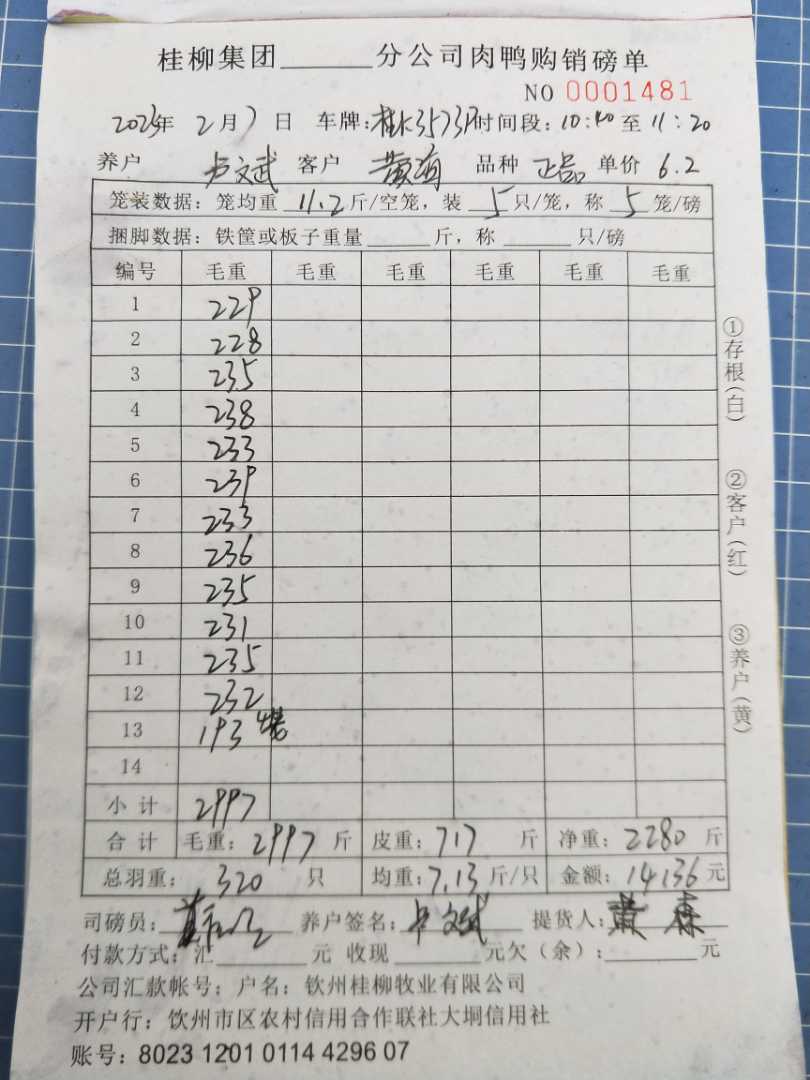 桂柳集团______分公司肉鸭购销磅单
NO 0001481
2025年 2月7日 车牌: 时间段: 10:40 至 11:20
养户 卢文斌 客户 黄 品种 正品 单价 6.2
笼装数据: 笼均重 11.2 斤/空笼, 装 5 只/笼, 称 5 笼/磅
捆脚数据: 铁筐或板子重量______斤, 称______只/磅
编号 毛重 毛重 毛重 毛重 毛重 毛重
1 229
2 228
3 235
4 238
5 233
6 239
7 233
8 236
9 235
10 231
11 235
12 232
13 193 4笼
14
小计 2997
合计 毛重: 2997 斤 皮重: 717 斤 净重: 2280 斤
总羽重: 320 只 均重: 7.13 斤/只 金额: 14136 元
司磅员: 养户签名: 卢文斌 提货人: 黄森
付款方式: 汇______元 收现______元欠(余):______元
公司汇款帐号: 户名: 钦州桂柳牧业有限公司
开户行: 钦州市区农村信用合作联社大垌信用社
账号: 8023 1201 0114 4296 07
①存根(白)
②客户(红)
③养户(黄)